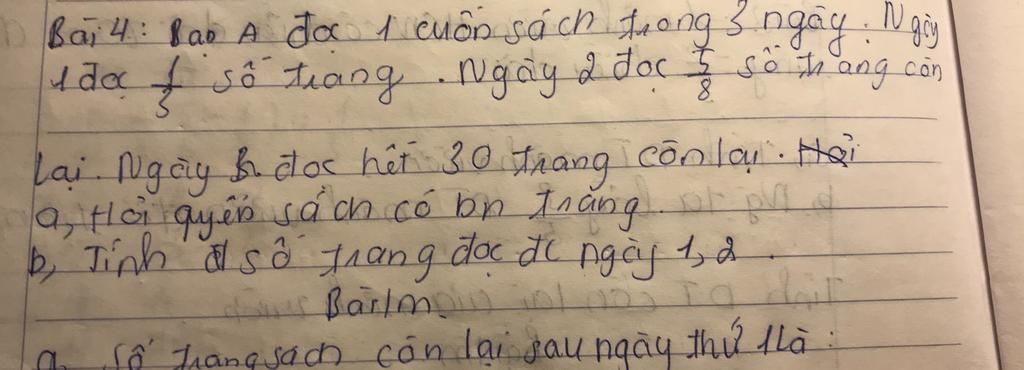 Bài 4: Bạn A đọc 1 cuốn sách trong 3 ngày. Ngày
1 đọc 1/3 số trang. Ngày 2 đọc 5/8 số trang còn
lại. Ngày 3 đọc hết 30 trang còn lại.
a, Hỏi quyển sách có bn trang.
b, Tính số trang đọc đc ngày 1, 2.
Bài lm
a. Số trang sách còn lại sau ngày thứ 1 là: